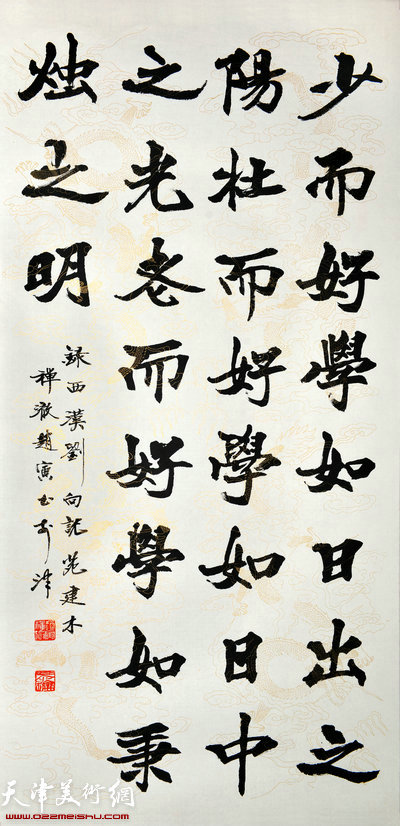 少而好學如日出之
陽壯而好學如日中
之光老而好學如秉
烛之明
録西漢劉向説苑建本
禪趙寅书于津
天津美術網
www.022meishu.com